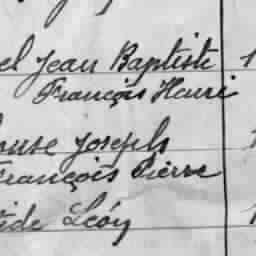 el Jean Baptiste 1
François Henri
ouse Joseph
François Pierre
ide Léon